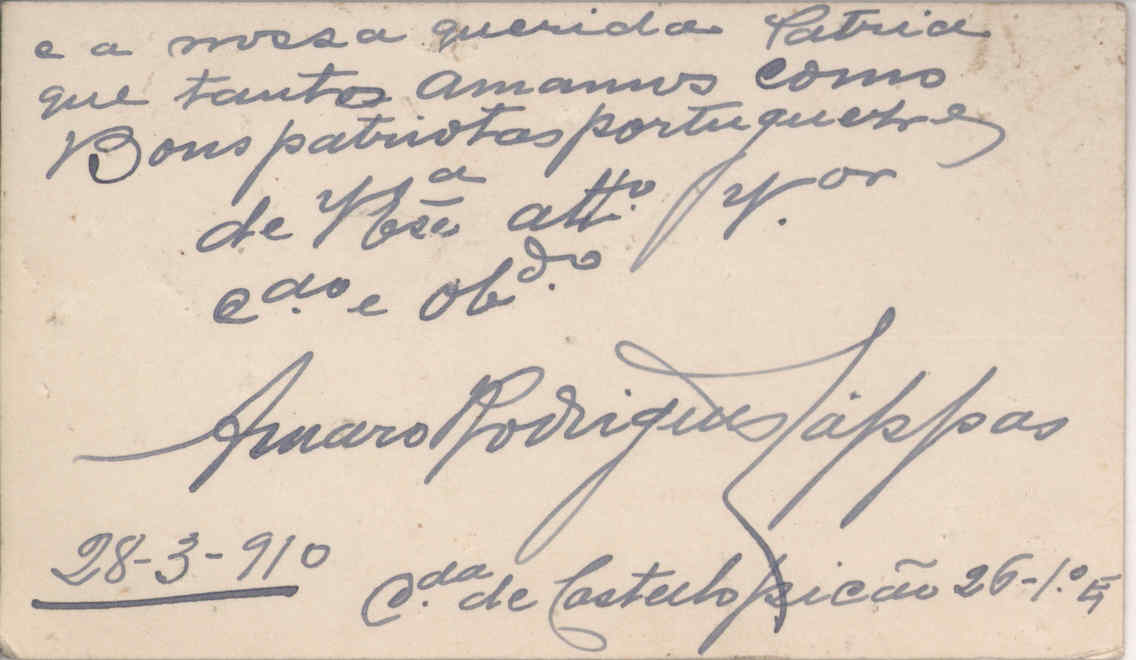 e a nossa querida Patria
que tantos amamos como
Bons patriotas portuguezes
de V. Exª attº V.or
c.do e ob.do
Amaro Rodrigues Láppas
28-3-910
C.da de Castello picão 26-1.º E